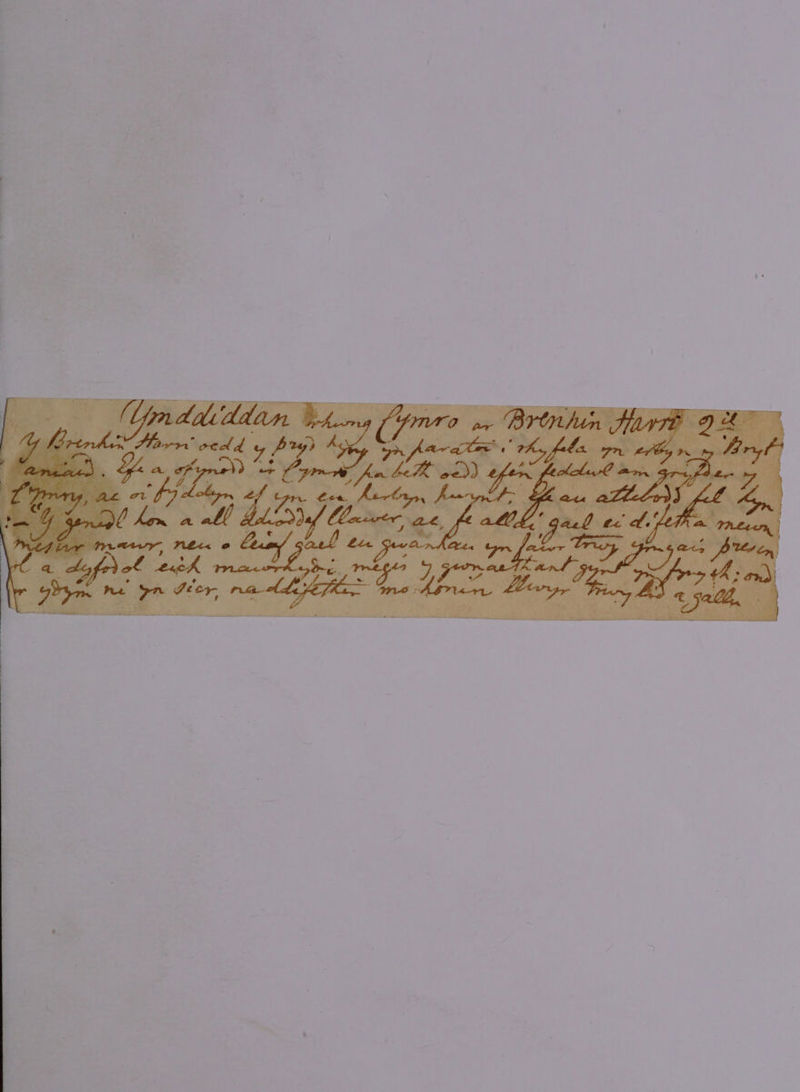 Ymddiddan rhwng Cymro ar Brenhin Harri 2il
Y Brenhin Harri oedd y pryd hyny yn paratoi i rhyfela yn erbyn y Bryt
aniaid. Efe a ofynodd ir Cymro, pa beth oedd efe'n feddwl am gryfder y
Cymry, ac oi fyddyn ef yn eu herbyn hwynt; Efe au attebodd fel hyn
:– Y genedl hon a all ddioddef llawer, ac, fe alldi gael ei difetha mewn
mesur mawr, neu o leiaf gael eu gwanhau yn fawr trwy ymgais presen
ol a dyfodol eich mawrhydri megis y gwnaethant gynt yn fynych; ond
yr ydym ni yn sicr, na ddifethir mo honin llwyr trwy lid a gallu